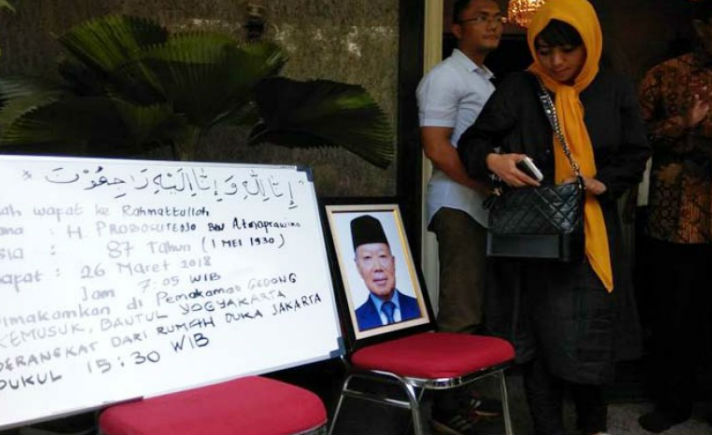 إنا لله وإنا إليه راجعون
lah wafat ke Rahmattullah
ama : H. PROBOSUTEDJO BIN Atmoprawiro
sia : 87 Tahun (1 MEI 1930)
apat : 26 Maret 2018
Jam 7:05 WIB
imakamkan di Pemakaman GEDONG
KEMUSUK, BAUTUL YOGYAKARTA
BERANGKAT DARI RUMAH DUKA JAKARTA
PUKUL 15:30 WIB